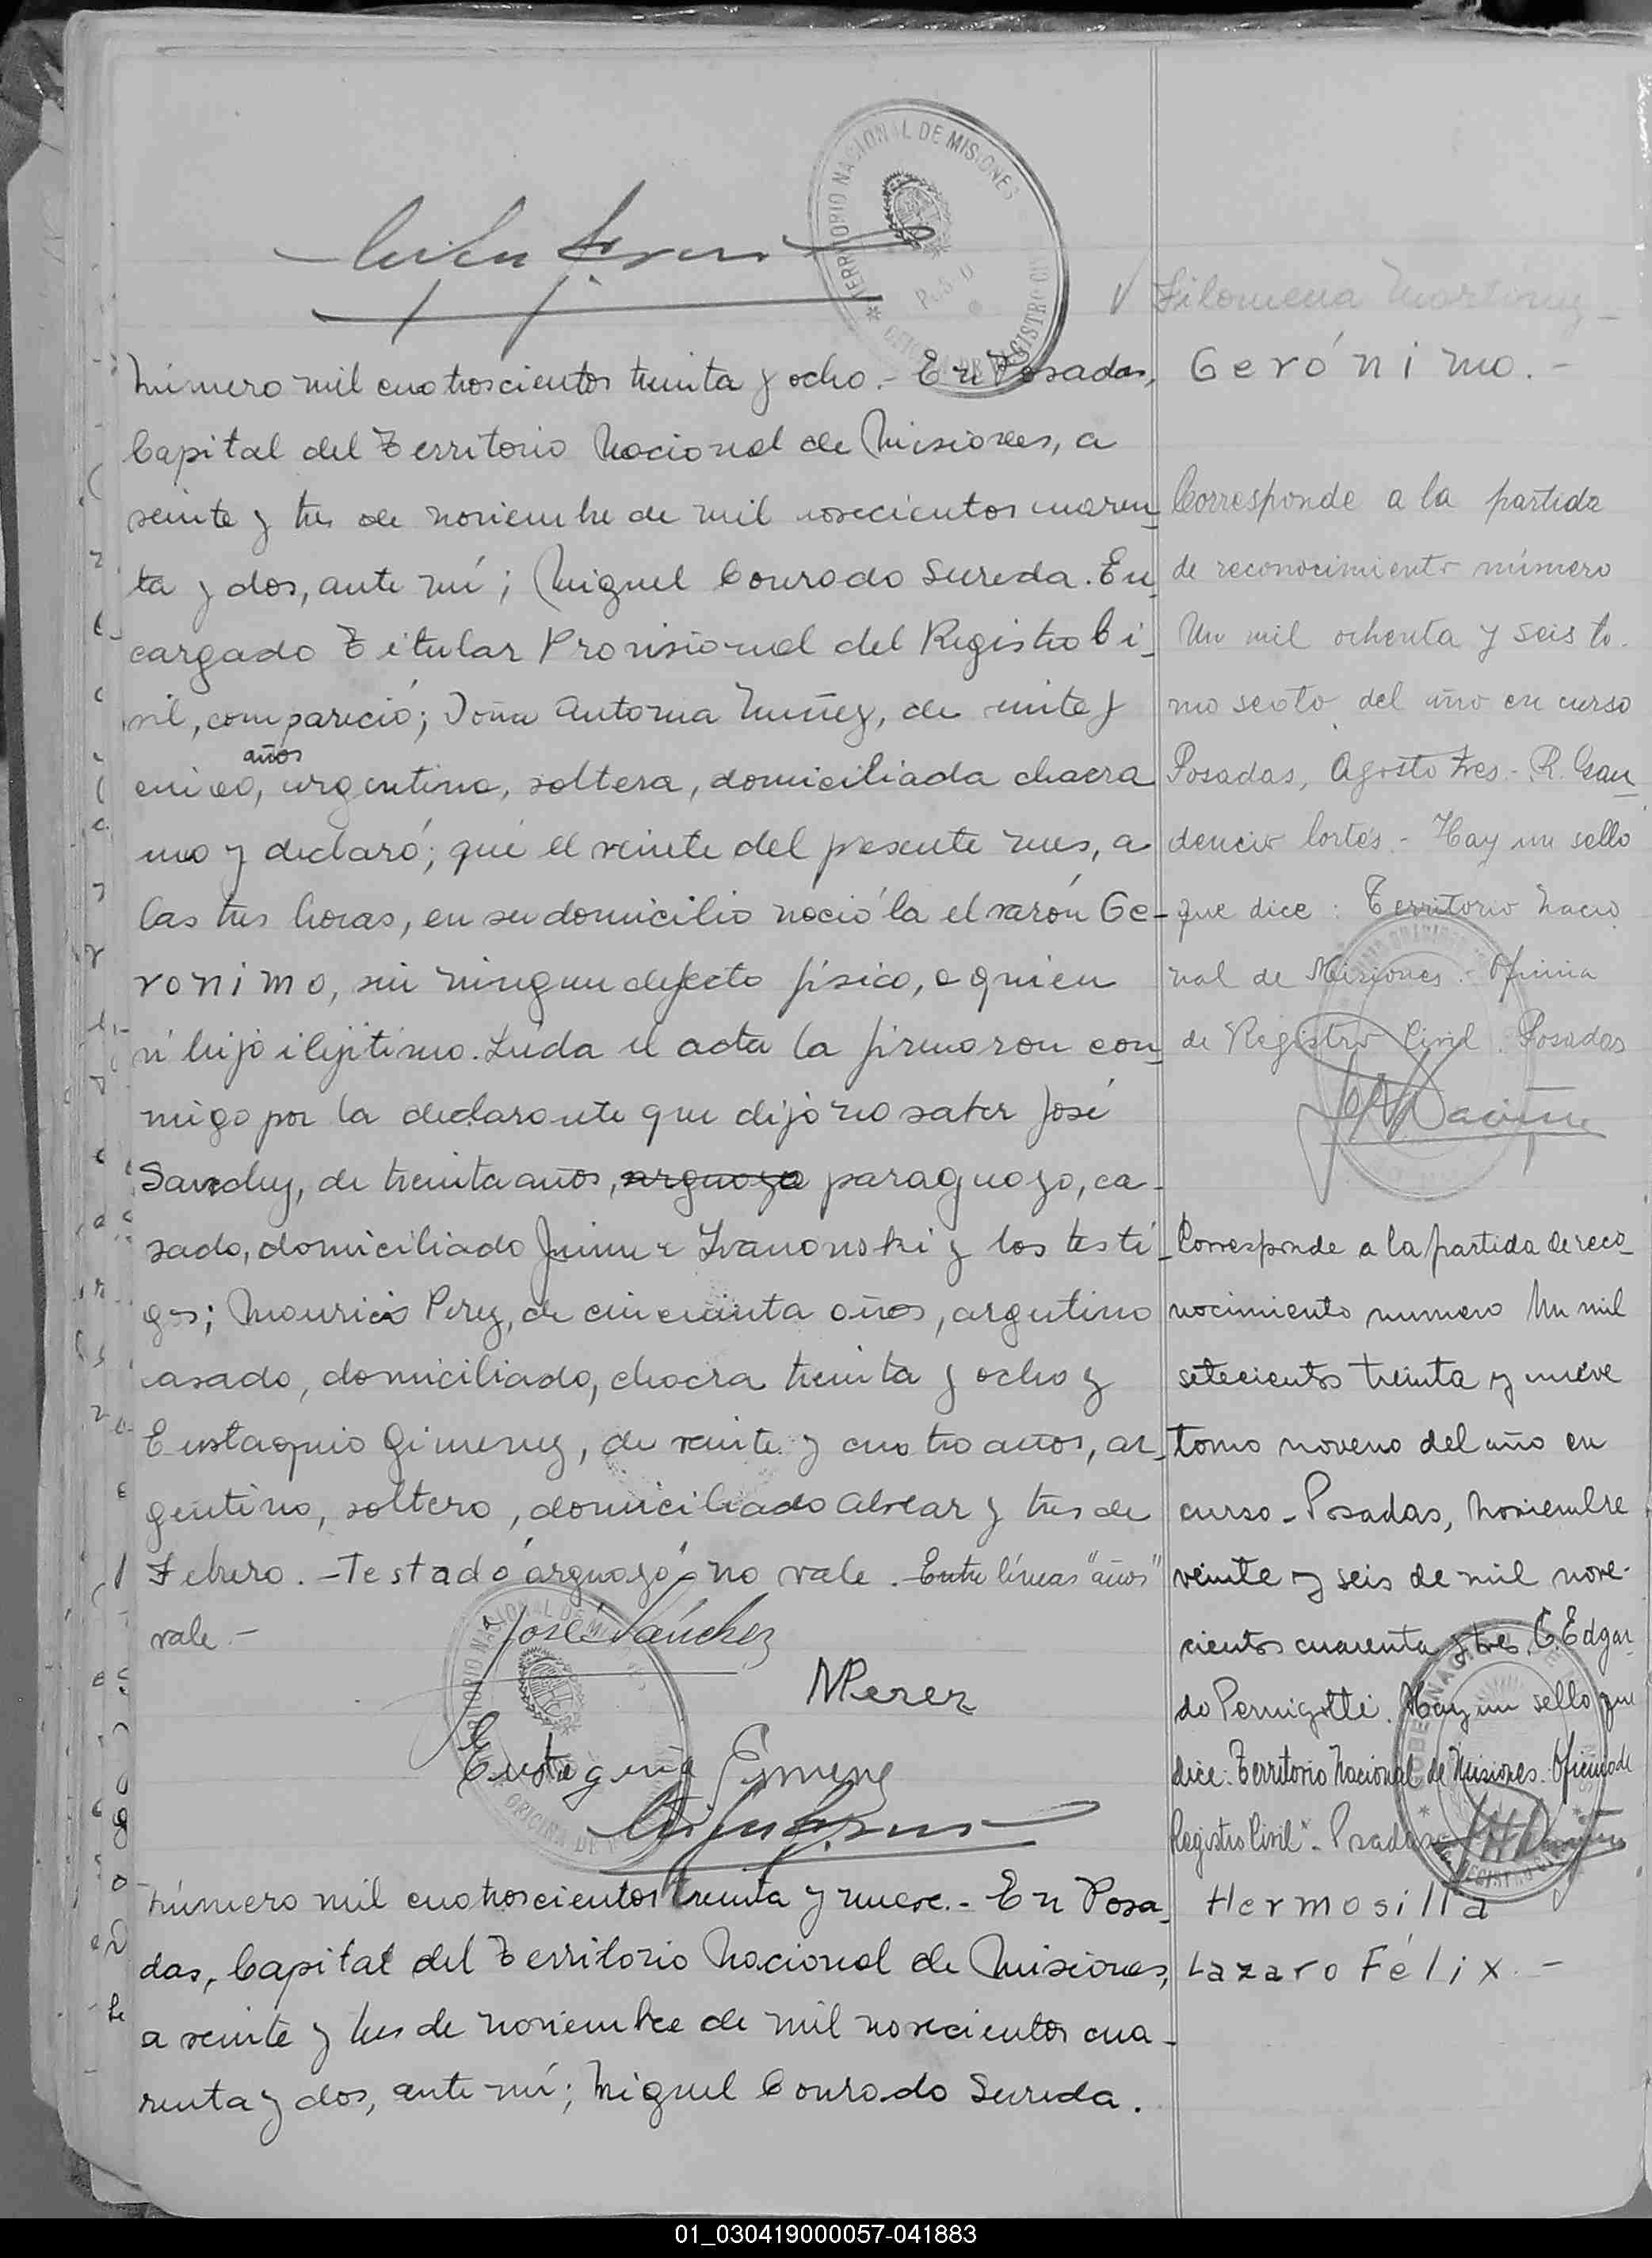 TERRITORIO NACIONAL DE MISIONES
Número mil cuatroscientos treinta y ocho.- En Posadas,
Capital del Territorio Nacional de Misiones, a
veinte y tres de noviembre de mil novecientos cuaren_
ta y dos, ante mí; Miguel Conrado Sureda. En_
cargado Titular Provisional del Registro Ci_
vil, compareció; Doña Antonia Nuñez, de veinte y
años
cinco, argentina, soltera, domiciliada chacra
uno y declaró; que el veinte del presente mes, a
las tres horas, en su domicilio nació la el varón Ge-
ronimo, sin ningun defecto físico, a quien
ví hijo ilejitimo. Leída el acta la firmaron con_
migo por la declarante que dijo no saber José
Sanchez, de treinta años, arguayo paraguayo, ca-
sado, domiciliado Junin e Ivanonski y los testi_
gos; Mauricio Perez, de cincuenta años, argentino
casado, domiciliado, chacra treinta y ocho y
Eustaquio Gimenez, de veinte y cuatro años, ar_
gentino, soltero, domiciliado Alvear y tres de
Febrero.-Testado "arguayo" no vale. Entre líneas "años"
vale.-
José Sánchez
MPerez
Eustaquio Gimenez
Número mil cuatroscientos treinta y nueve.- En Posa_
das, Capital del Territorio Nacional de Misiones,
a veinte y tres de noviembre de mil novecientos cua-
renta y dos, ante mí; Miguel Conrado Sureda.
Filomena Martinez
Gerónimo.-
Corresponde a la partida
de reconocimiento número
Un mil ochenta y seis to.
mo sexto del año en curso
Posadas, Agosto tres.- R. Gau_
dencio Cortés.- Hay un sello
que dice: Territorio Nacio
nal de Misiones. Oficina
de Registro Civil. Posadas
Corresponde a la partida de reco_
nocimiento numero Un mil
setecientos treinta y nueve
tomo noveno del año en
curso- Posadas, Noviembre
veinte y seis de mil nove-
cientos cuarenta y tres. C. Edgar_
do Pernigotti. Hay un sello que
dice: Territorio Nacional de Misiones. Oficina de
Registro Civil"- Posadas
Hermosilla
Lazaro Félix.-
01_030419000057-041883